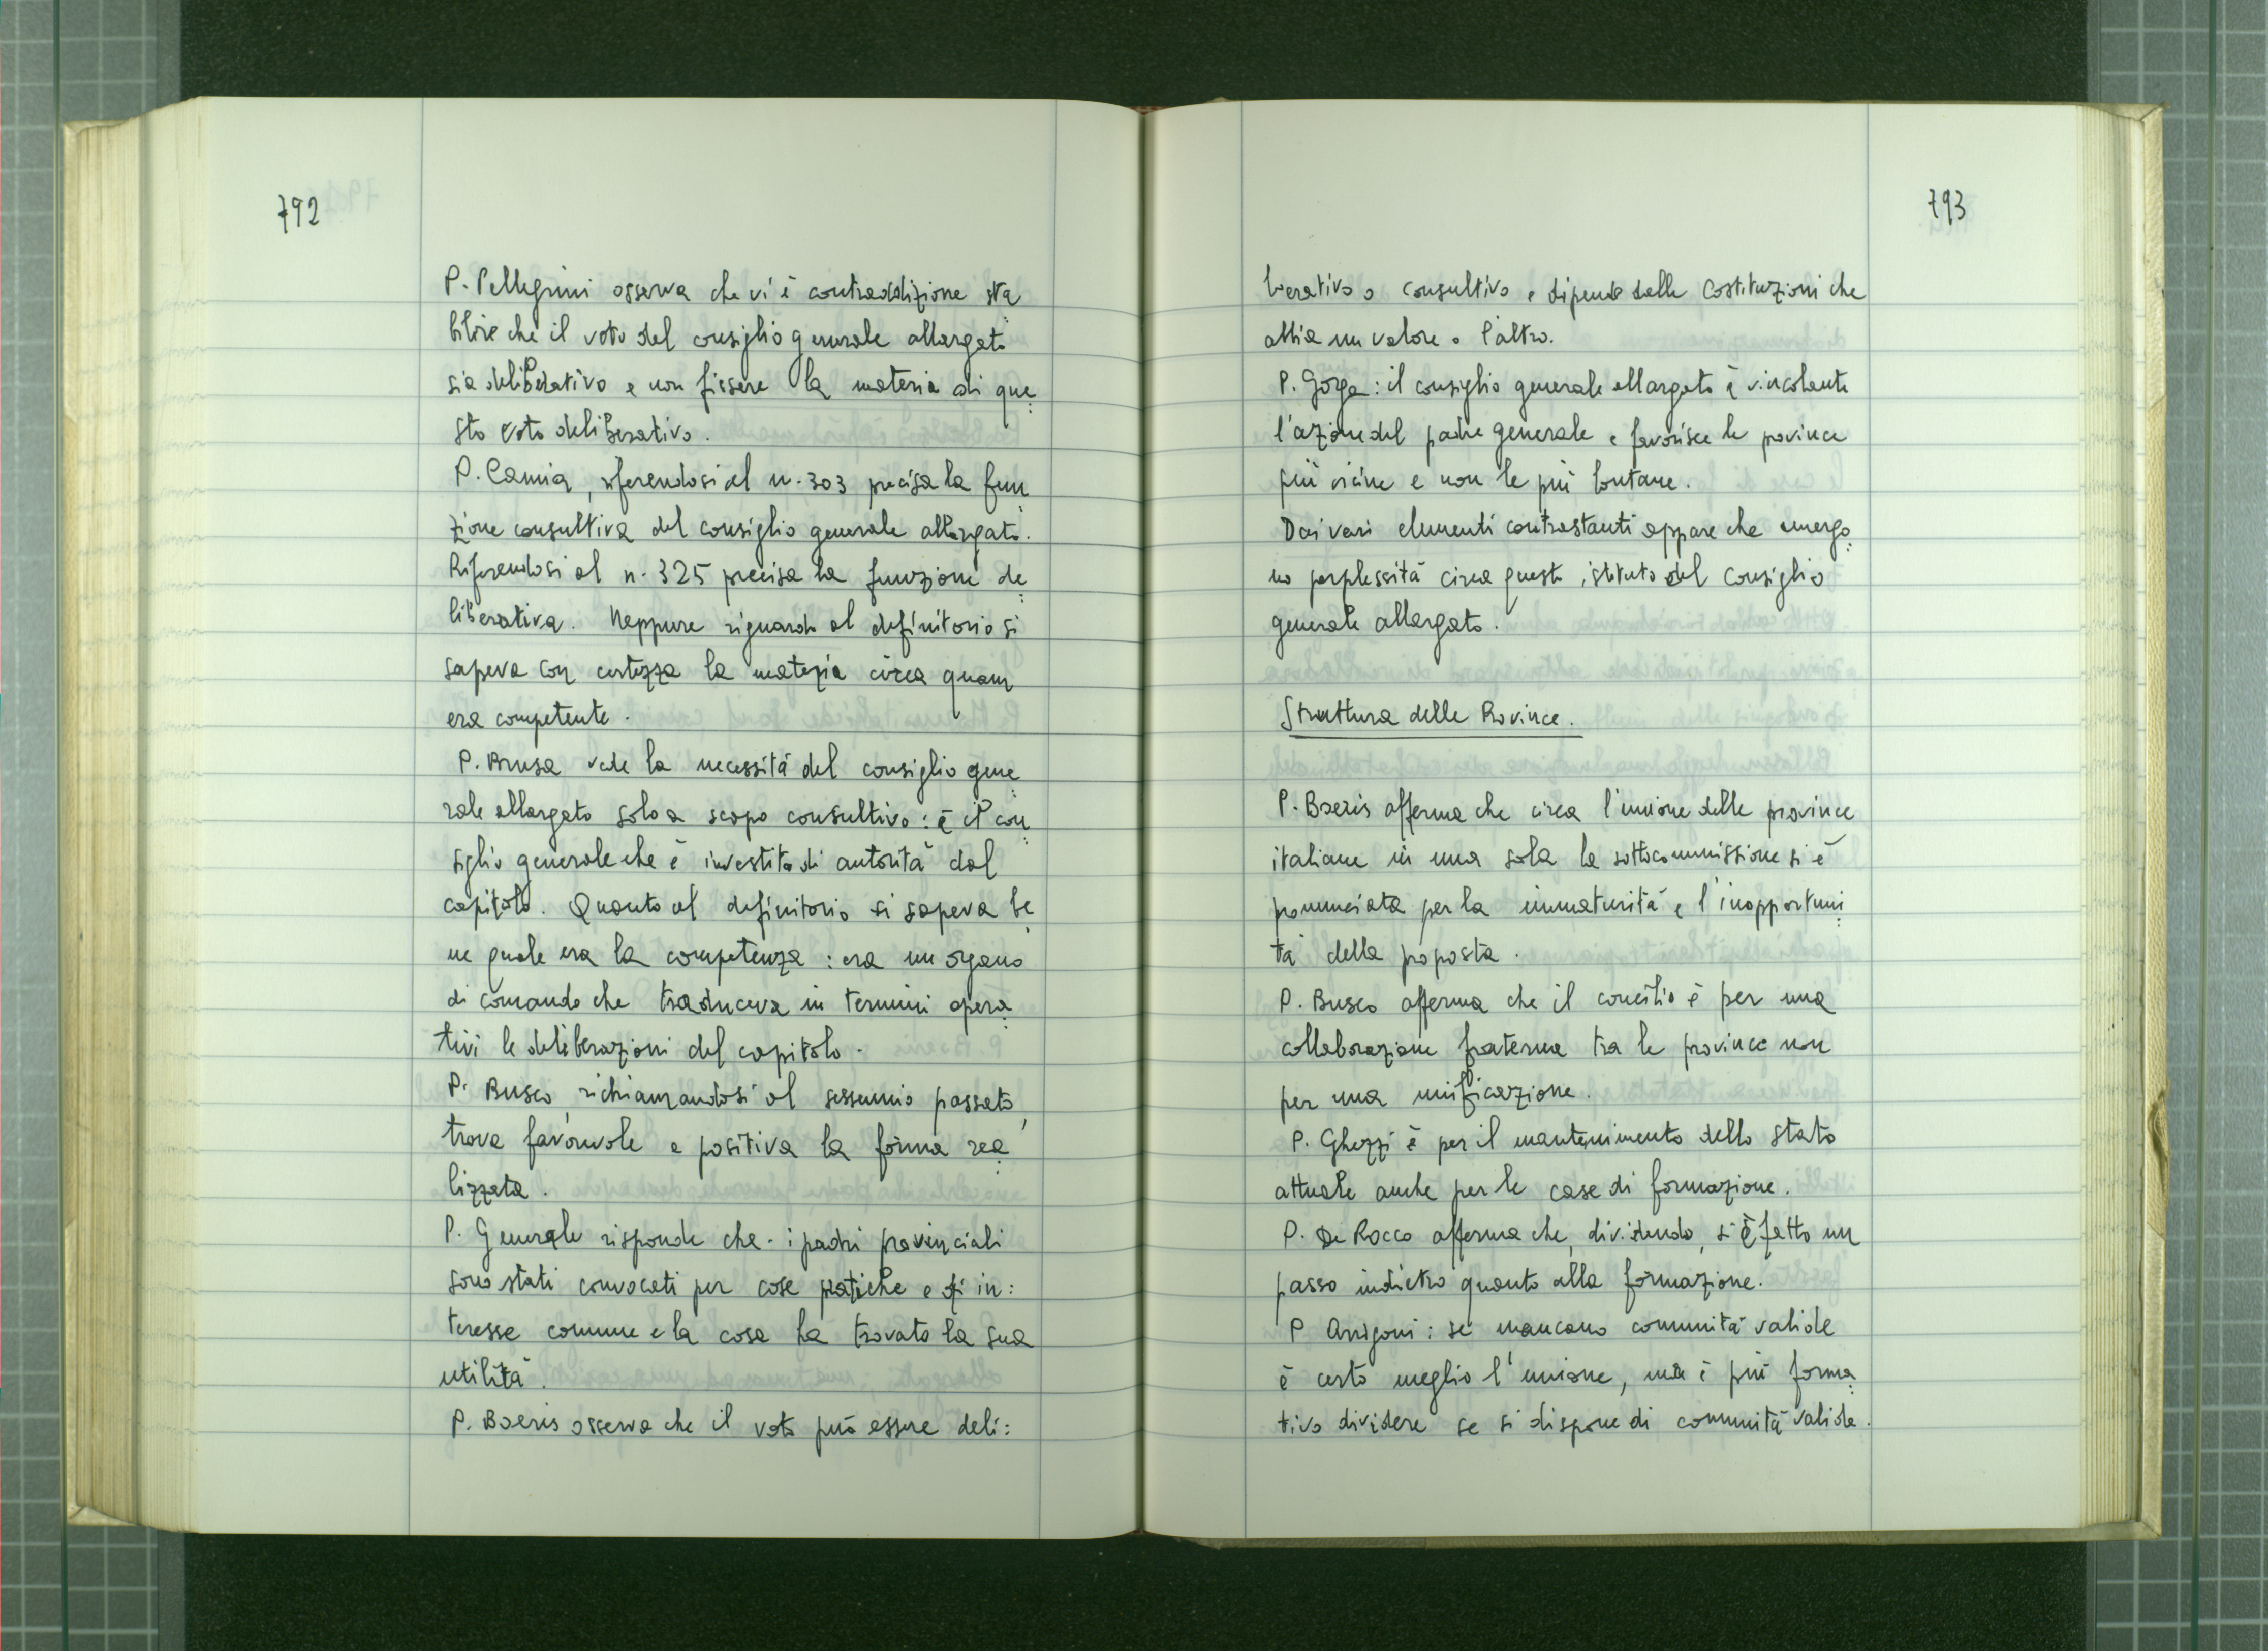 792
P. Pellegrini osserva che vi è contraddizione sta:
bilire che il voto del consiglio generale allargato
sia deliberativo e non fissare la materia di que:
sto voto deliberativo.
P. Camia, riferendosi al n. 303 precisa la fun:
zione consultiva del consiglio generale allargato.
Riferendosi al n. 325 precisa la funzione de:
liberativa. Neppure riguardo al definitorio si
sapeva con certezza la materia circa quam
era competente.
P. Brusa vede la necessità del consiglio gene:
rale allargato solo a scopo consultivo: è il con:
siglio generale che è investito di autorità dal
capitolo. Quanto al definitorio si sapeva be:
ne quale era la competenza: era un organo
di comando che traduceva in termini opera:
tivi le deliberazioni del capitolo.
P. Busco, richiamandosi al sessennio passato,
trova favorevole e positiva la forma rea:
lizzata.
P. Generale risponde che i padri provinciali
sono stati convocati per cose pratiche e di in:
teresse comune e la cosa ha trovato la sua
utilità.
P. Boeris osserva che il voto può essere deli:
793
berativo o consultivo e dipende dalle Costituzioni che
abbia un valore o l'altro.
P. Gorga: il consiglio generale allargato è vincolante
l'azione del padre generale e favorisce le province
più vicine e non le più lontane.
Dai vari elementi contrastanti appare che emergo:
no perplessità circa questo istituto del Consiglio
generale allargato.
Struttura delle Province.
P. Boeris afferma che circa l'unione delle province
italiane in una sola la sottocommissione si è
pronunciata per la immaturità e l'inopportuni:
tà della proposta.
P. Busco afferma che il concilio è per una
collaborazione fraterna tra le province non
per una unificazione.
P. Ghezzi è per il mantenimento dello stato
attuale anche per le case di formazione.
P. De Rocco afferma che, dividendo, si è fatto un
passo indietro quanto alla formazione.
P Arrigoni: se mancano comunità valide
è certo meglio l'unione, ma è più forma:
tivo dividere se si dispone di comunità valide.